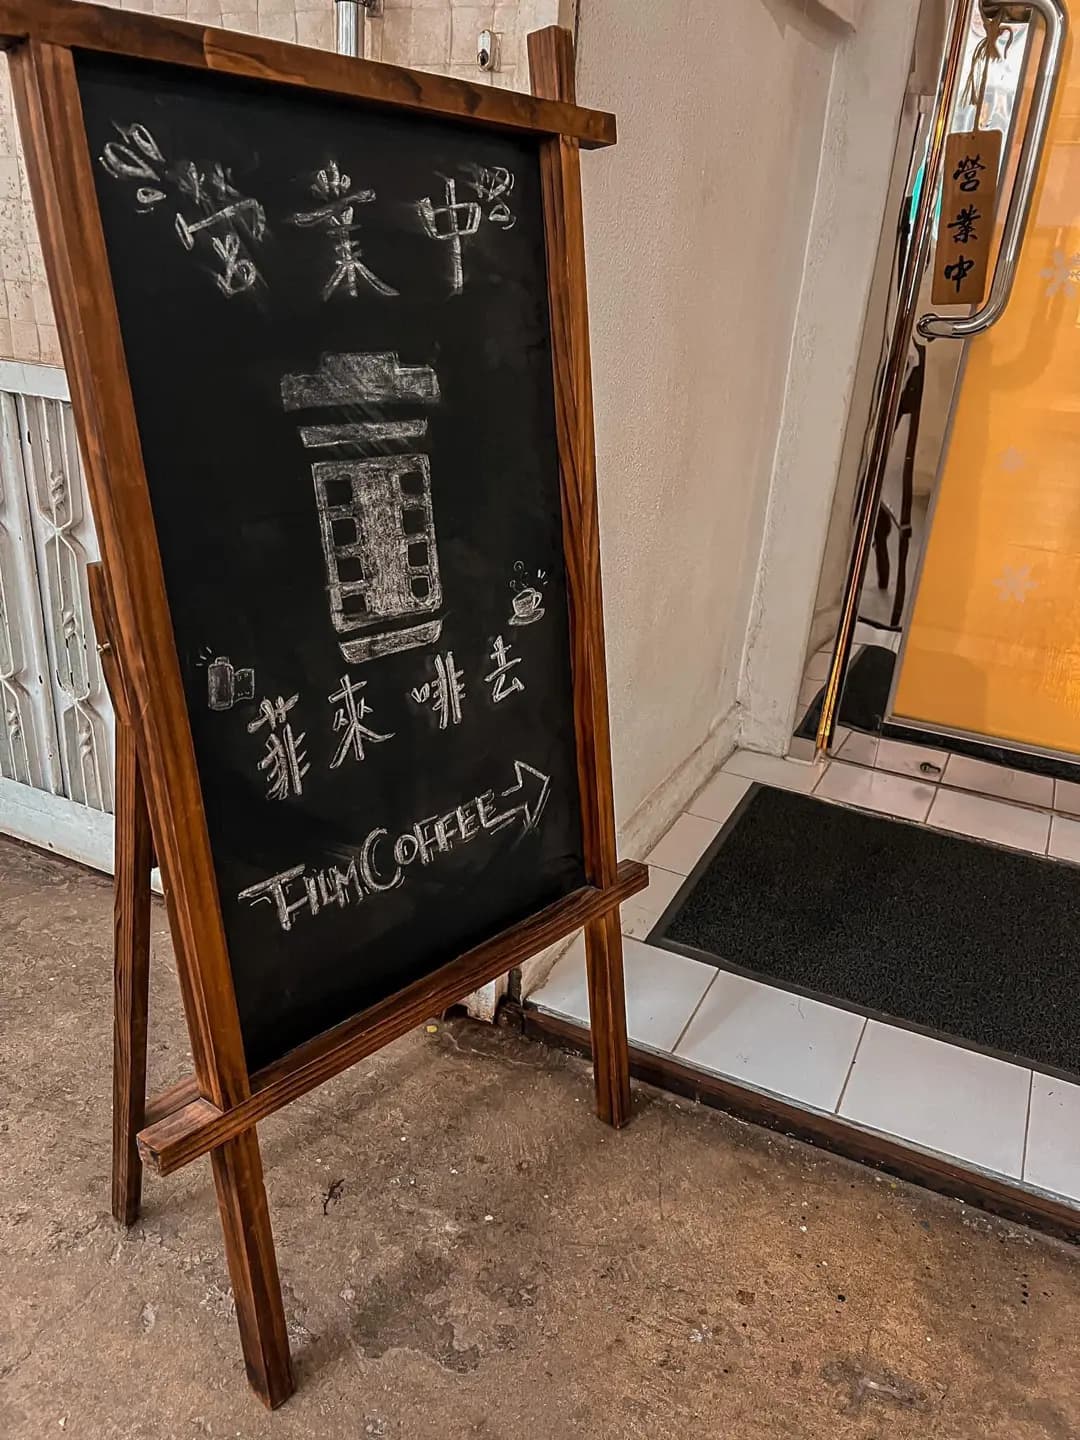 营業中
菲來啡去
FILM COFFEE
營業中